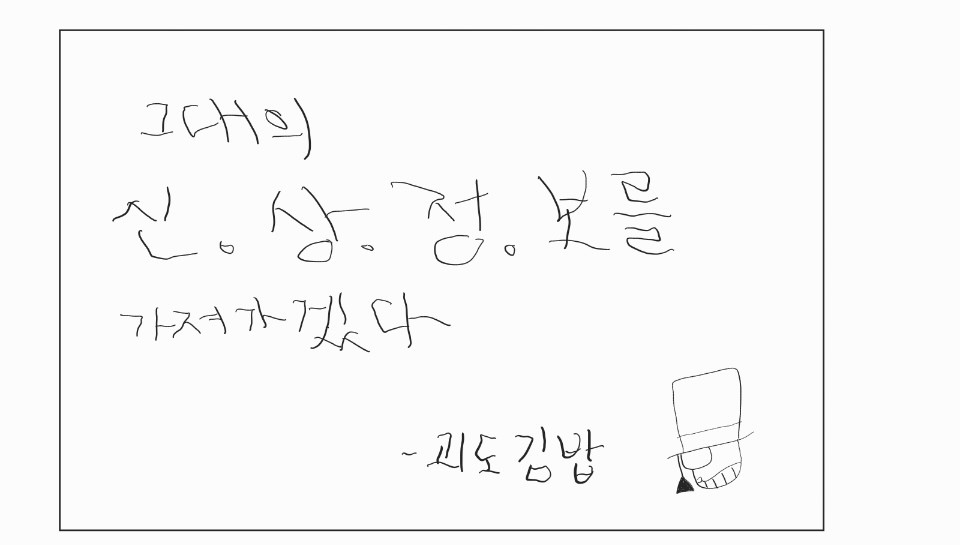 그대의
신.상.정.보를
가져가겠다
-괴도김밥